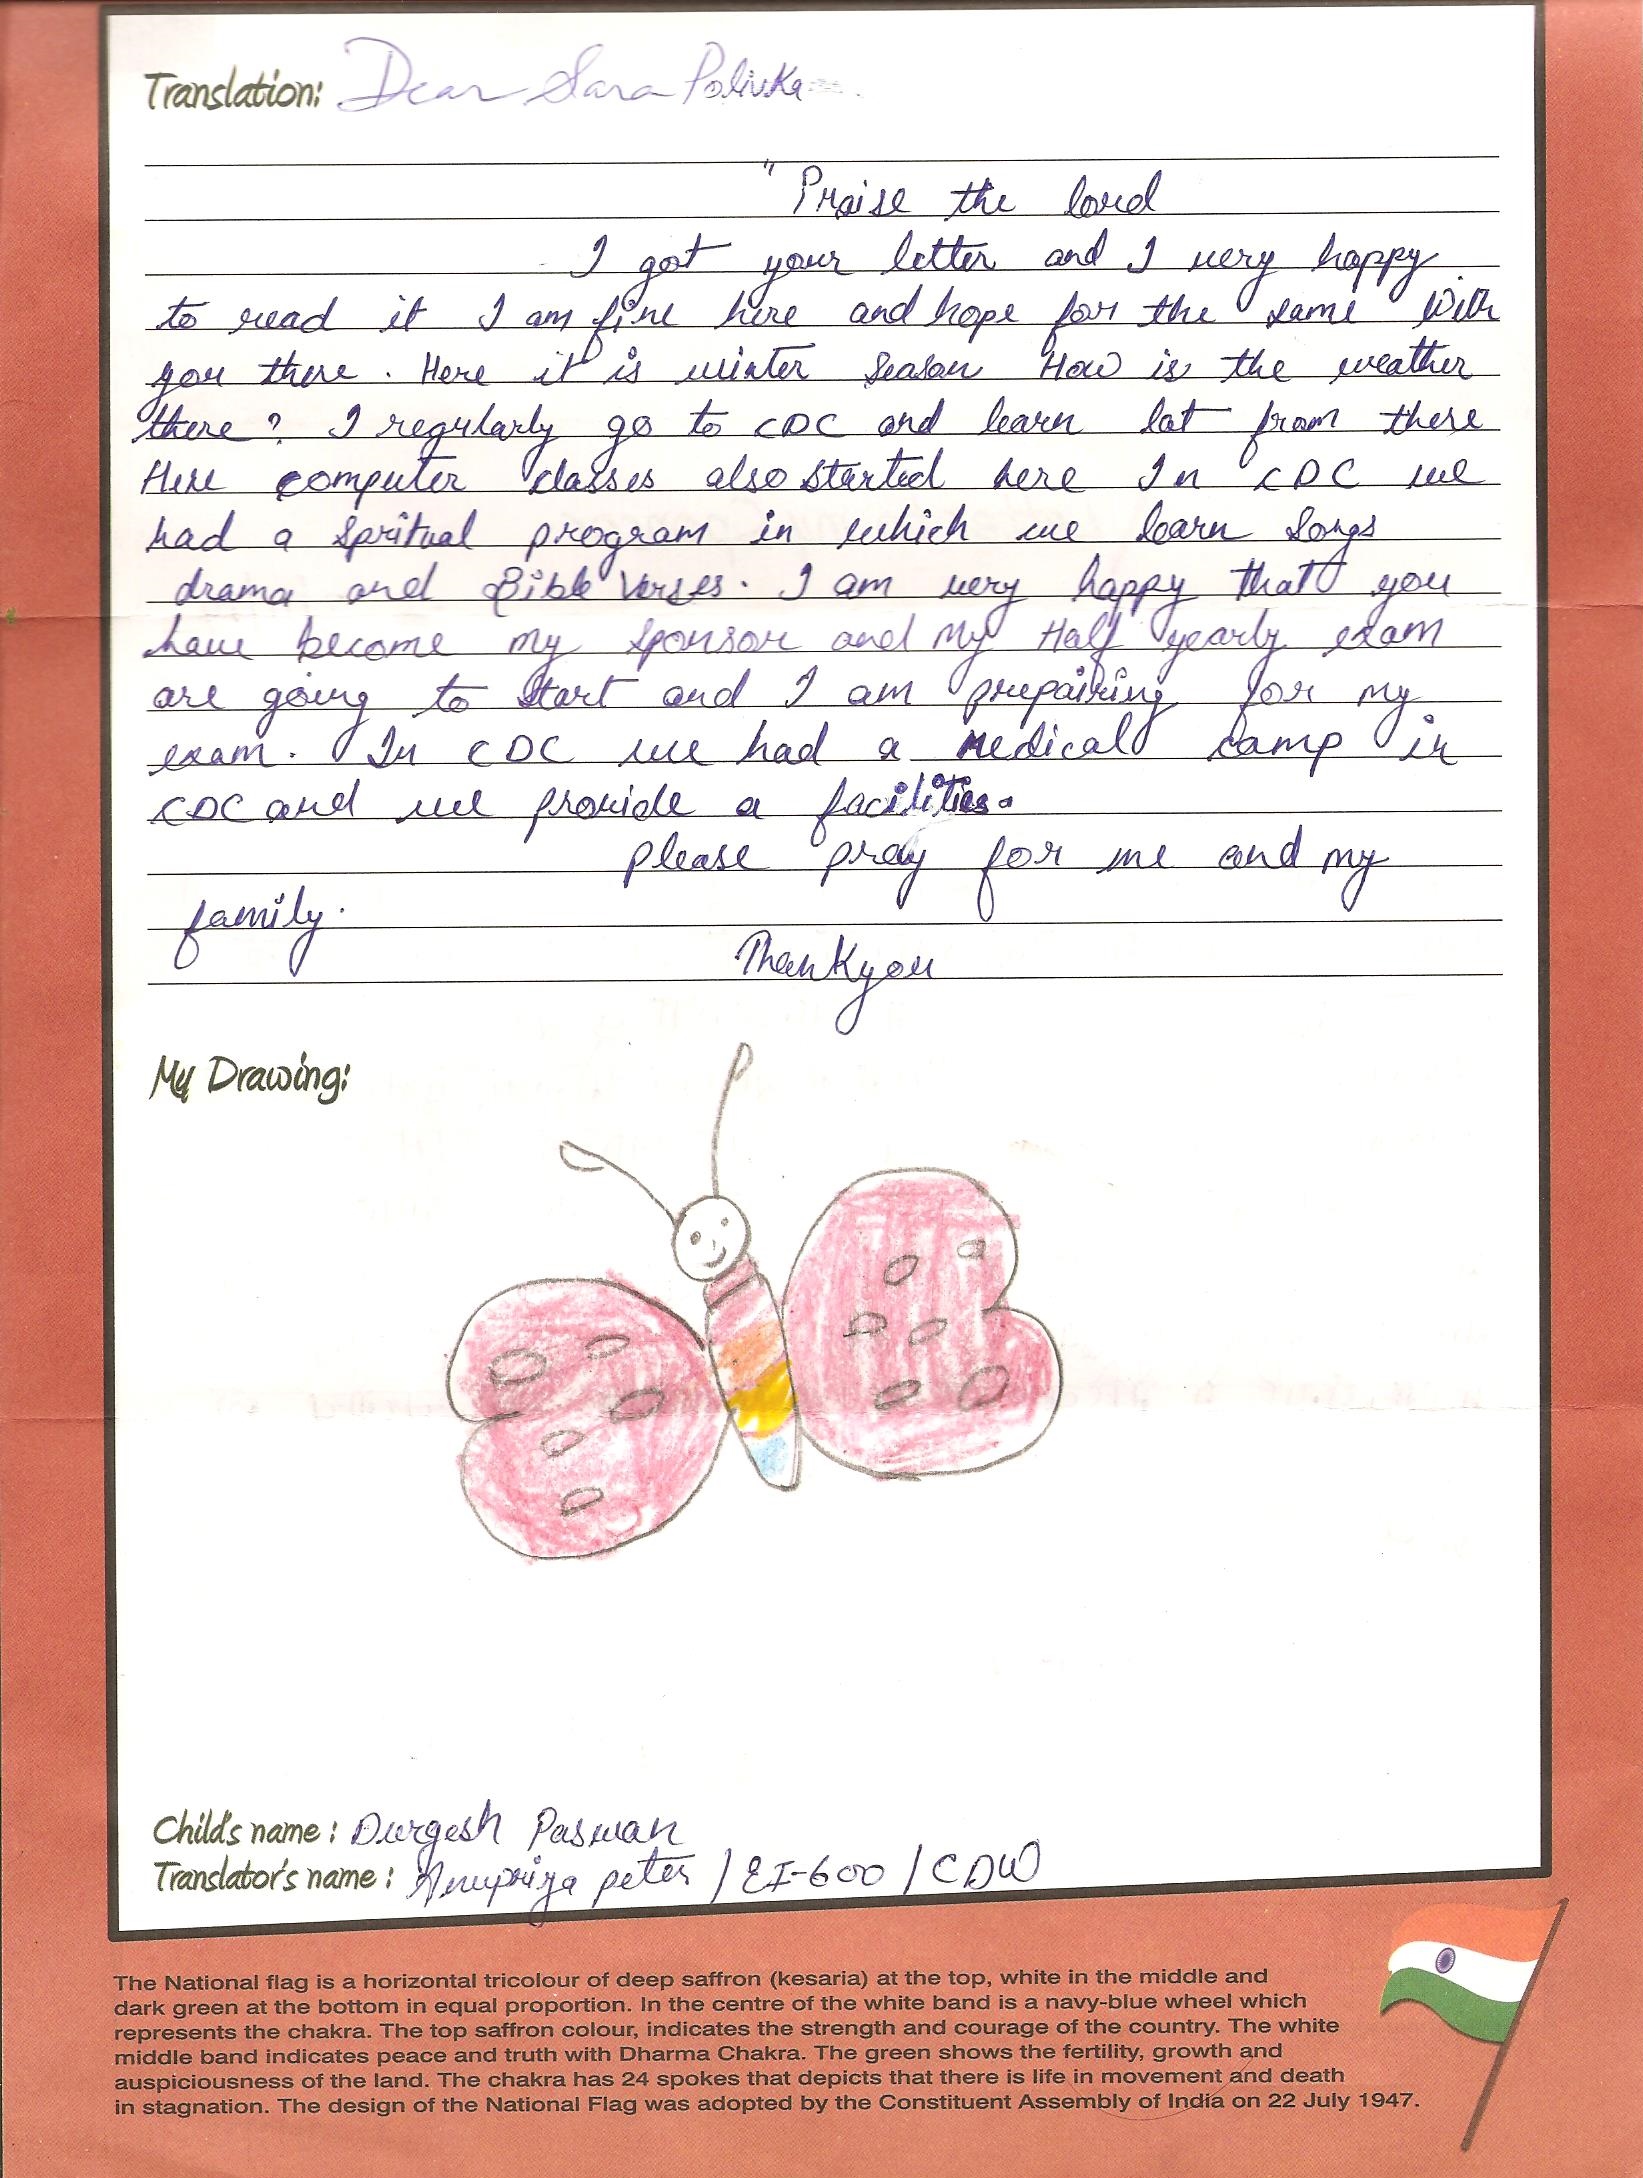 Translation: Dear Sara Polivka
" Praise the lord
I got your letter and I very happy
to read it I am fine here and hope for the same With
you there. Here it is winter season How is the weather
there? I regularly go to CDC and learn lot from there
Here computer classes also started here In CDC we
had a spritual program in which we learn songs
drama and Bible Verses. I am very happy that you
have become my sponsor and my Half yearly exam
are going to start and I am prepairing for my
exam. In CDC we had a Medical camp in
CDC and we provide a facilities.
please pray for me and my
family.
Thankyou
My Drawing:
Child's name: Durgesh Paswan
Translator's name: Anupriya peter / EI-600 / CDW
The National flag is a horizontal tricolour of deep saffron (kesaria) at the top, white in the middle and
dark green at the bottom in equal proportion. In the centre of the white band is a navy-blue wheel which
represents the chakra. The top saffron colour, indicates the strength and courage of the country. The white
middle band indicates peace and truth with Dharma Chakra. The green shows the fertility, growth and
auspiciousness of the land. The chakra has 24 spokes that depicts that there is life in movement and death
in stagnation. The design of the National Flag was adopted by the Constituent Assembly of India on 22 July 1947.